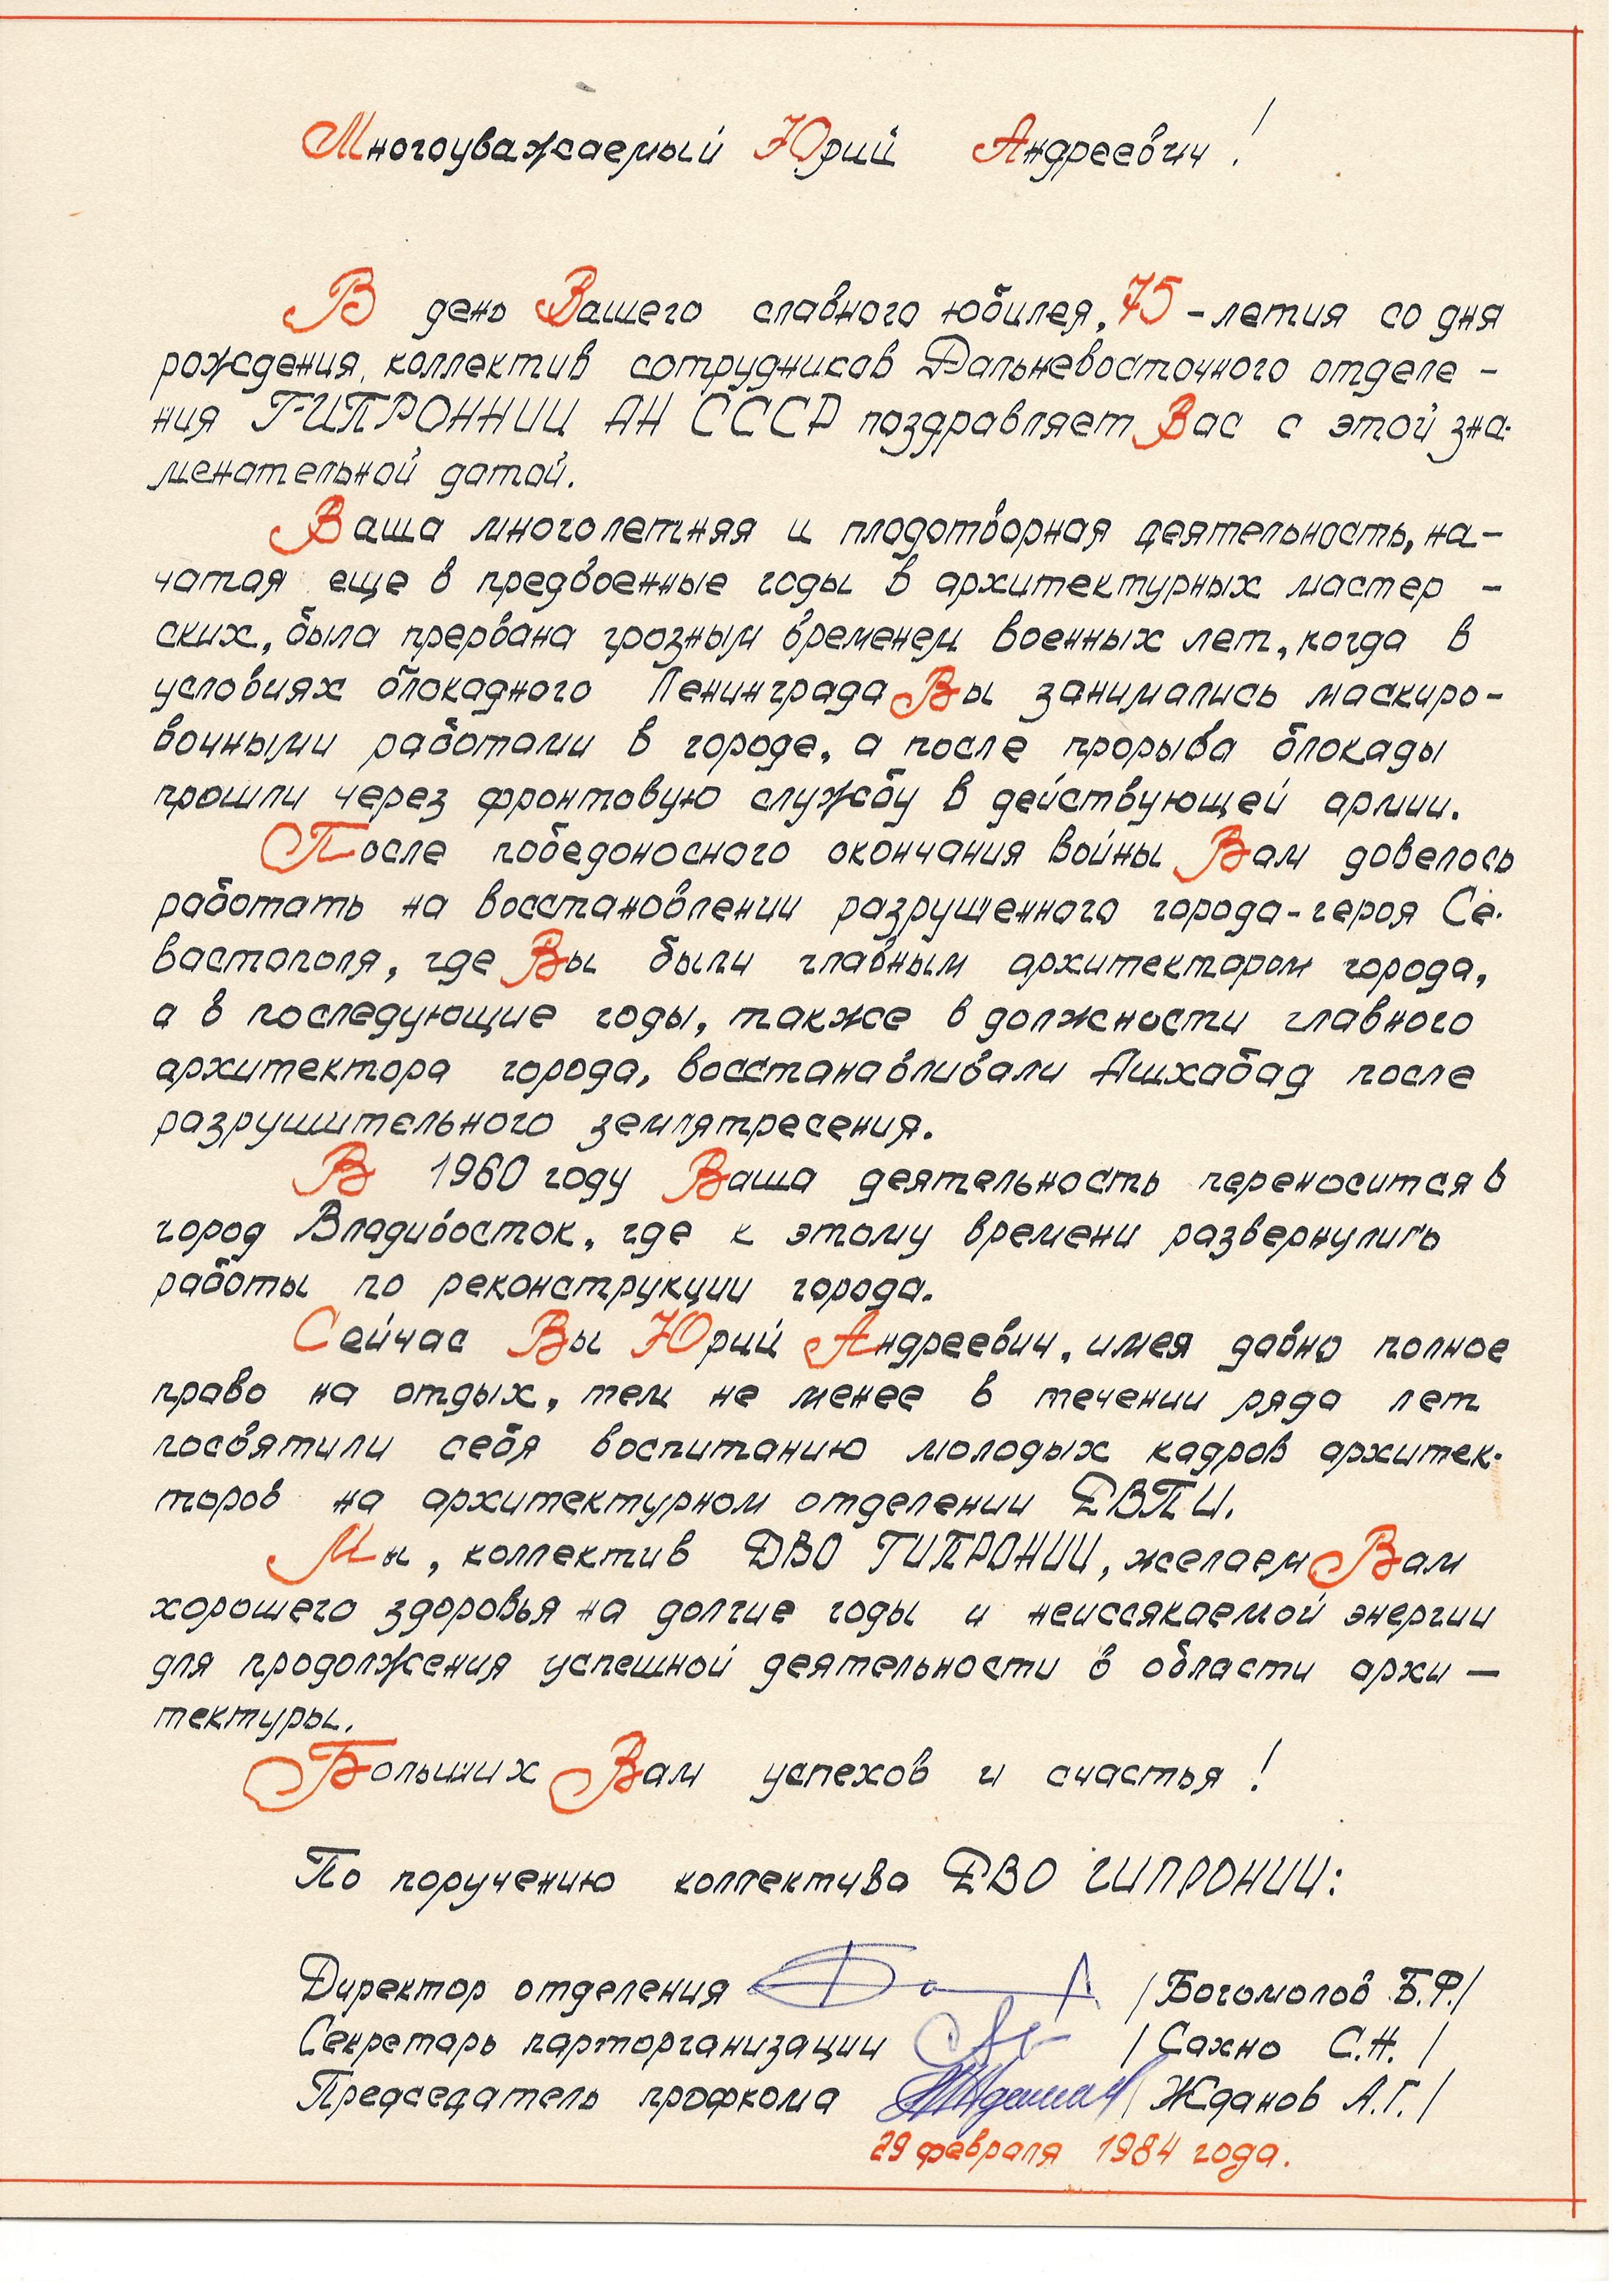 Многоуважаемый Юрий Андреевич!
В день Вашего славного юбилея, 75-летия со дня
рождения, коллектив сотрудников Дальневосточного отделе-
ния ГИПРОННИИ АН СССР поздравляет Вас с этой зна-
менательной датой.
Ваша многолетняя и плодотворная деятельность, на-
чатая еще в предвоенные годы в архитектурных мастер-
ских, была прервана грозным временем военных лет, когда в
условиях блокадного Ленинграда Вы занимались маскиро-
вочными работами в городе, а после прорыва блокады
прошли через фронтовую службу в действующей армии.
После победоносного окончания войны Вам довелось
работать на восстановлении разрушенного города-героя Се-
вастополя, где Вы были главным архитектором города,
а в последующие годы, также в должности главного
архитектора города, восстанавливали Ашхабад после
разрушительного землятресения.
В 1960 году Ваша деятельность переносится в
город Владивосток, где к этому времени развернулись
работы по реконструкции города.
Сейчас Вы Юрий Андреевич, имея давно полное
право на отдых, тем не менее в течении ряда лет
посвятили себя воспитанию молодых кадров архитек-
торов на архитектурном отделении ДВПИ.
Мы, коллектив ДВО ГИПРОНИИ, желаем Вам
хорошего здоровья на долгие годы и неиссякаемой энергии
для продолжения успешной деятельности в области архи-
тектуры.
Больших Вам успехов и счастья!
По поручению коллектива ДВО ГИПРОНИИ:
Директор отделения /Богомолов Б.Ф./
Секретарь парторганизации /Сахно С.Н./
Председатель профкома /Жданов А.Г./
29 февраля 1984 года.